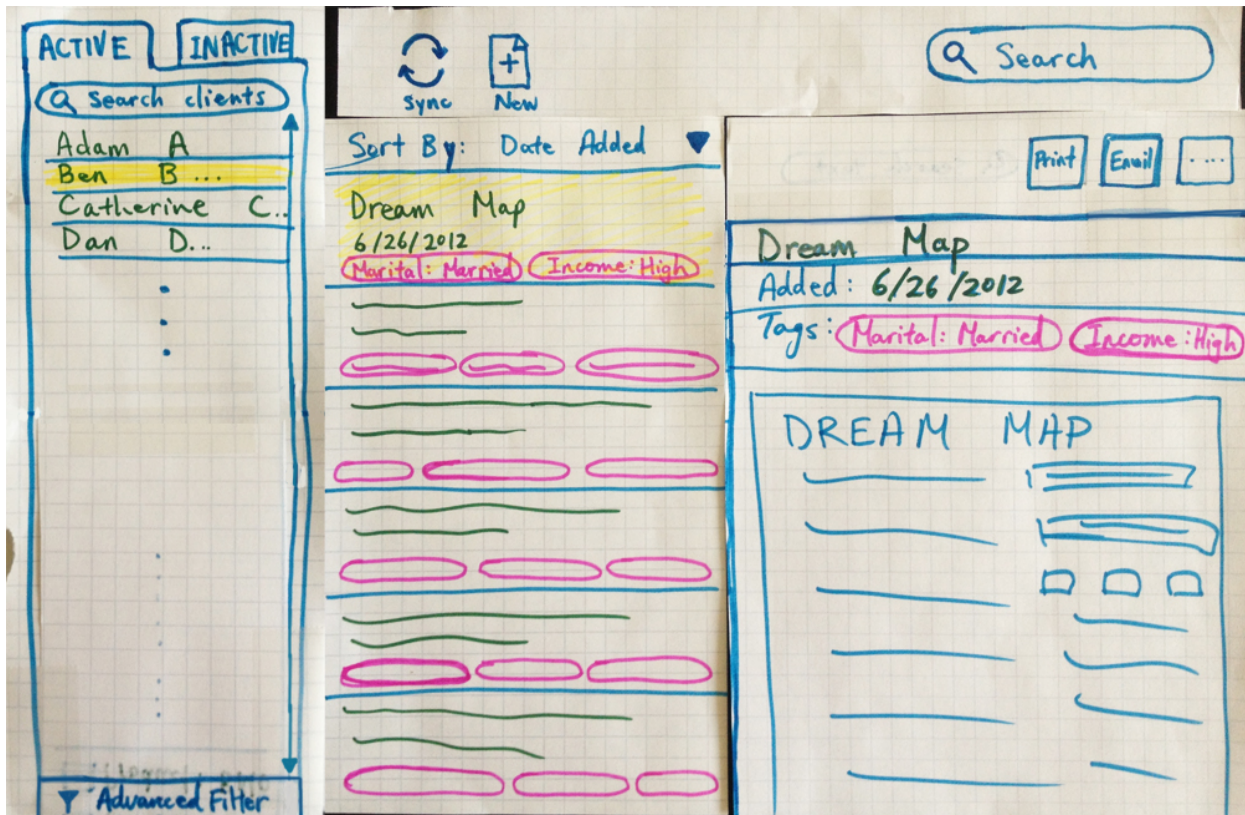 ACTIVE INACTIVE
Search clients
Adam A
Ben B...
Catherine C..
Dan D...
Advanced Filter
Sync New
Search
Sort By: Date Added
Dream Map
6/26/2012
Marital: Married Income: High
Print Email ....
Dream Map
Added: 6/26/2012
Tags: Marital: Married Income: High
DREAM MAP